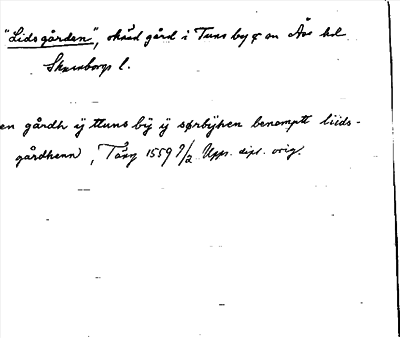 "Lidsgården", okänd gård i Tuns by o sn Åse hd
Skaraborgs l.
en gårdh ÿ ttuns bÿ ÿ sørbÿken benemptt liids-
gårdhenn, Tång 1559 9/2 Upps. dipl. orig.